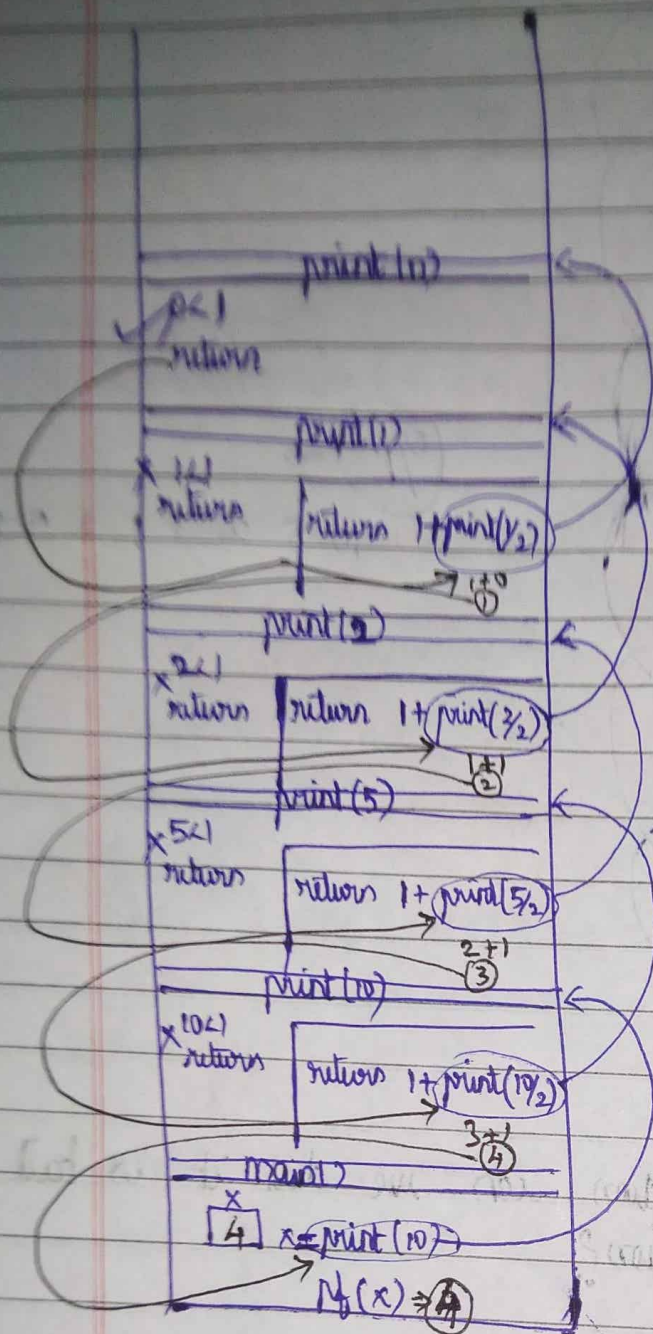 print(n)
0<1
return
print(1)
x 1<1
return
return 1+print(1/2)
1+0
1
print(2)
x 2<1
return
return 1+print(2/2)
1+1
2
print(5)
x 5<1
return
return 1+print(5/2)
2+1
3
print(10)
x 10<1
return
return 1+print(10/2)
3+1
4
main()
x
4
x=print(10)
Pf(x) ⇒ 4